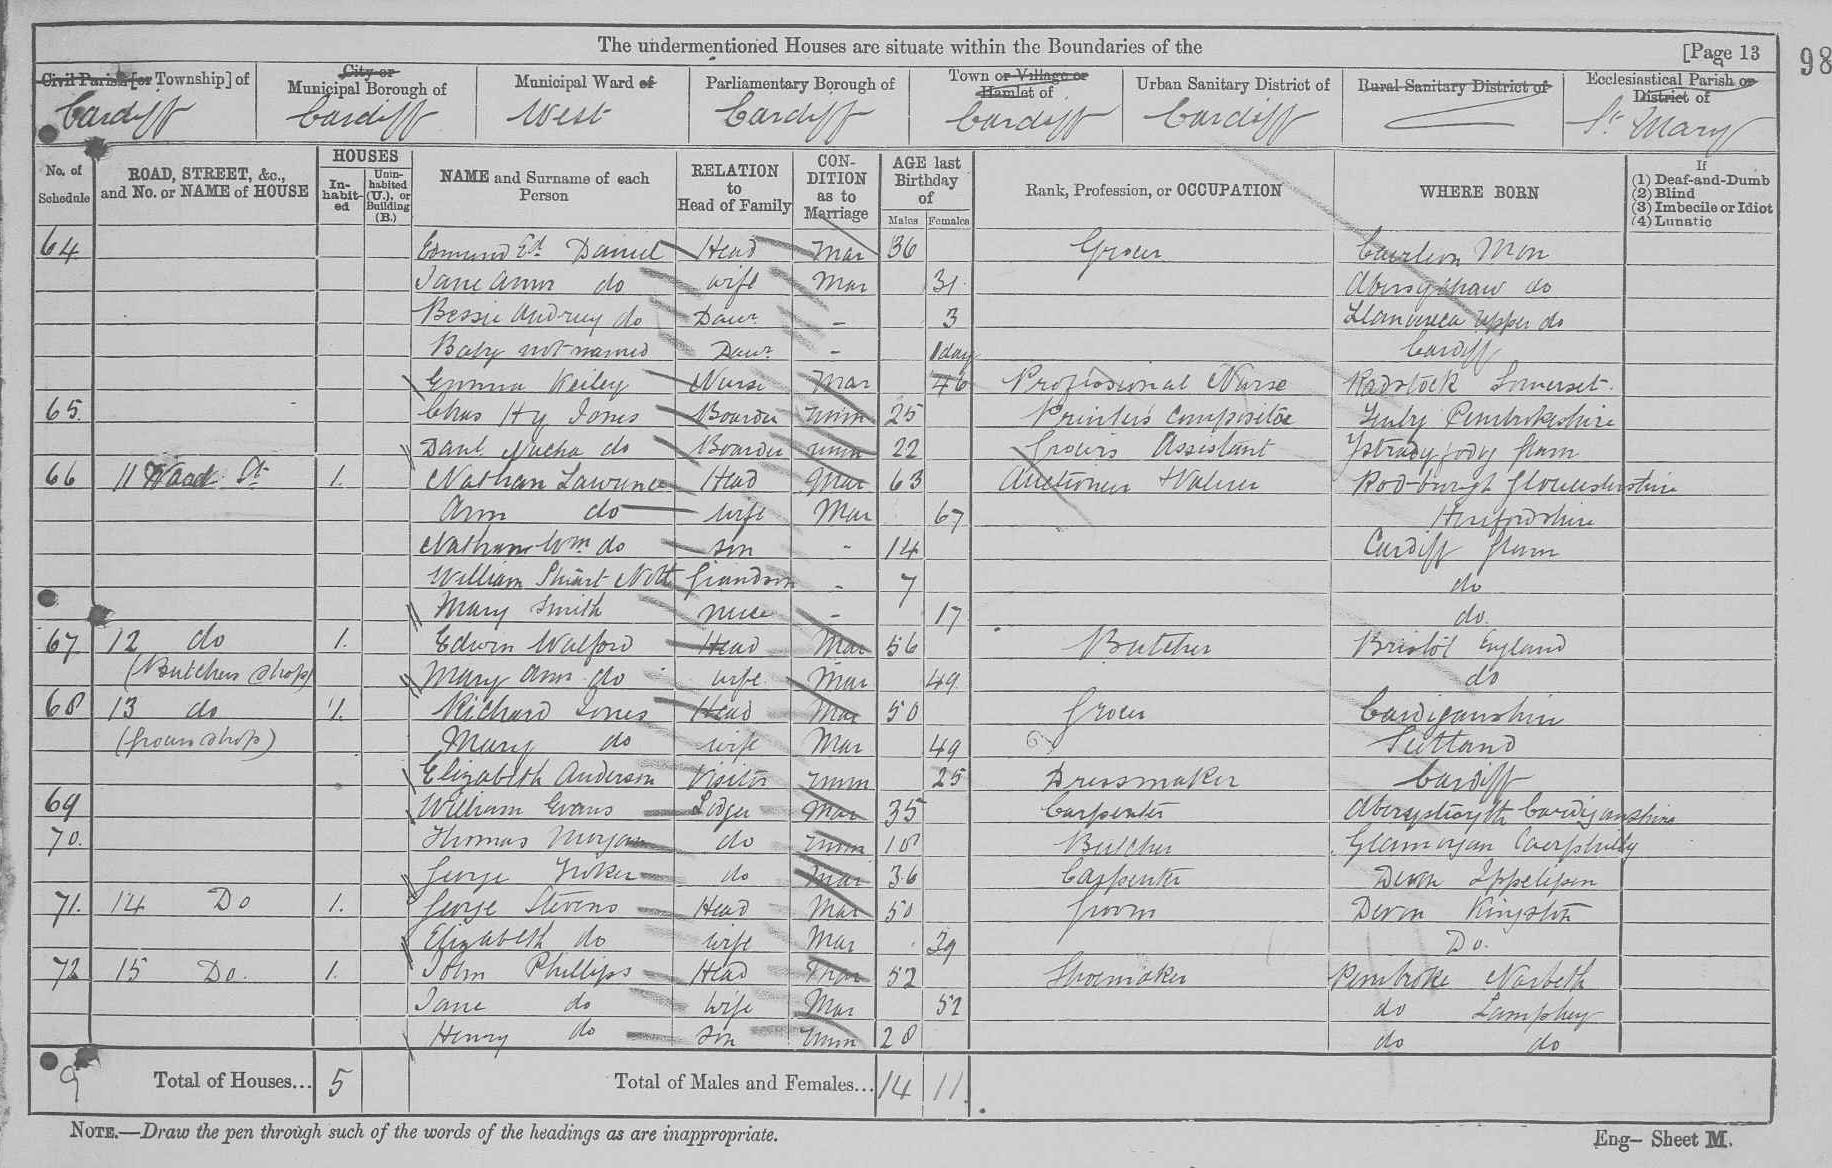 The undermentioned Houses are situate within the Boundaries of the [Page 13 98
Civil Parish [or Township] of City or Municipal Borough of Municipal Ward of Parliamentary Borough of Town or Village or Hamlet of Urban Sanitary District of Rural Sanitary District of Ecclesiastical Parish or District of
Cardiff Cardiff West Cardiff Cardiff Cardiff St Mary
No. of Schedule ROAD, STREET, &c., and No. or NAME of HOUSE HOUSES In-habit-ed Unin-habited (U.), or Building (B.) NAME and Surname of each Person RELATION to Head of Family CON-DITION as to Marriage AGE last Birthday of Males Females Rank, Profession, or OCCUPATION WHERE BORN If (1) Deaf-and-Dumb (2) Blind (3) Imbecile or Idiot (4) Lunatic
64 Edmund Ed Daniel Head Mar 36 Grocer Caerleon Mon
Jane Ann do wife Mar 31 do
Bessie Audrey do Daur - 3 Upper do
Baby not named Daur - 1 day Cardiff
Emma Keiley Nurse Mar 46 Professional Nurse Radstock Somerset.
65. Chas Hy Jones Boarder unm 25 Printer's Compositor Tenby Pembrokeshire
Danl do Boarder unm 22 Grocers Assistant Glam
66 11 Wood St 1. Nathan Lawrence Head Mar 63 Auctioneer & Valuer Gloucestershire
Ann do wife Mar 67 Herefordshire
Nathan Wm do son - 14 Cardiff Glam
William Stuart Nott Grandson - 7 do
Mary Smith niece - 17 do.
67 12 do 1. Edwin Walford Head Mar 56 Butcher Bristol England
(Butchers Shop) Mary Ann do wife Mar 49 do
68 13 do 1. Richard Jones Head Mar 50 Grocer Cardiganshire
(Grocer shop) Mary do wife Mar 49 Scotland
Elizabeth Anderson Visitor unm 25 Dressmaker Cardiff
69 William Evans Lodger Mar 35 Carpenter Aberystwyth Cardiganshire
70. Thomas Morgan do unm 18 Butcher Glamorgan Caerphilly
George do Mar 36 Carpenter Devon Ipplepen
71. 14 Do 1. George Stevens Head Mar 50 Groom Devon Kingston
Elizabeth do wife Mar 39 Do.
72 15 Do. 1. John Phillips Head Mar 52 Shoemaker Pembroke Narbeth
Jane do wife Mar 52 do Lamphey
Henry do son unm 28 do do
9 Total of Houses... 5 Total of Males and Females... 14 11
NOTE.—Draw the pen through such of the words of the headings as are inappropriate. Eng- Sheet M.